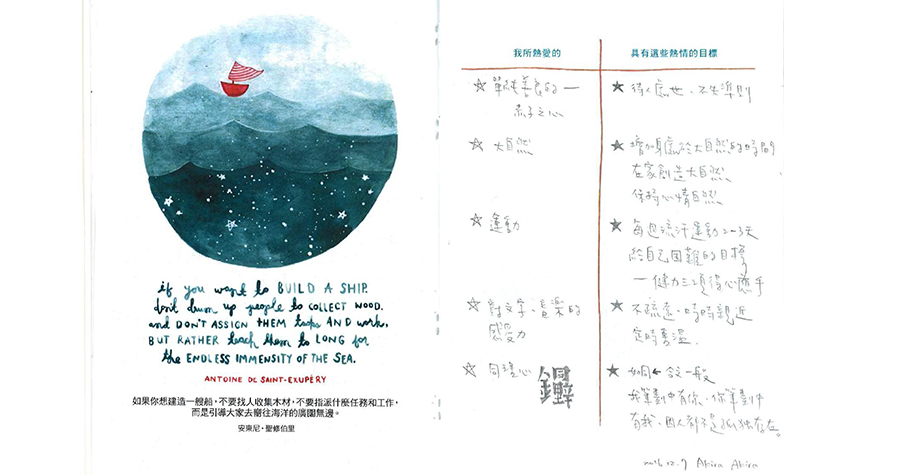 if you want to BUILD A SHIP.
don't drum up people to COLLECT WOOD.
and DON'T ASSIGN THEM tasks AND work,
BUT RATHER teach them to LONG for
the ENDLESS IMMENSITY OF THE SEA.
ANTOINE DE SAINT-EXUPÉRY
如果你想建造一艘船，不要找人收集木材，不要指派什麼任務和工作，
而是引導大家去嚮往海洋的廣闊無邊。
安東尼・聖修伯里
我所熱愛的
具有這些熱情的目標
☆ 單純善良的一
赤子之心
★ 待人處世、不失準則
☆ 大自然
★ 增加身處於大自然的時間
在家創造大自然
保持心情自然
☆ 運動
★ 每週流汗運動2-3天
給自己困難的目標
一健力三項得心應手
☆ 對文字、音樂的
感受力
★ 不疏遠、時時親近
定時
☆ 同理心
★ 如同 一般
我筆劃中有你、你筆劃中
有我、因人都不是孤獨存在。
2016.12.7 Akira Akira